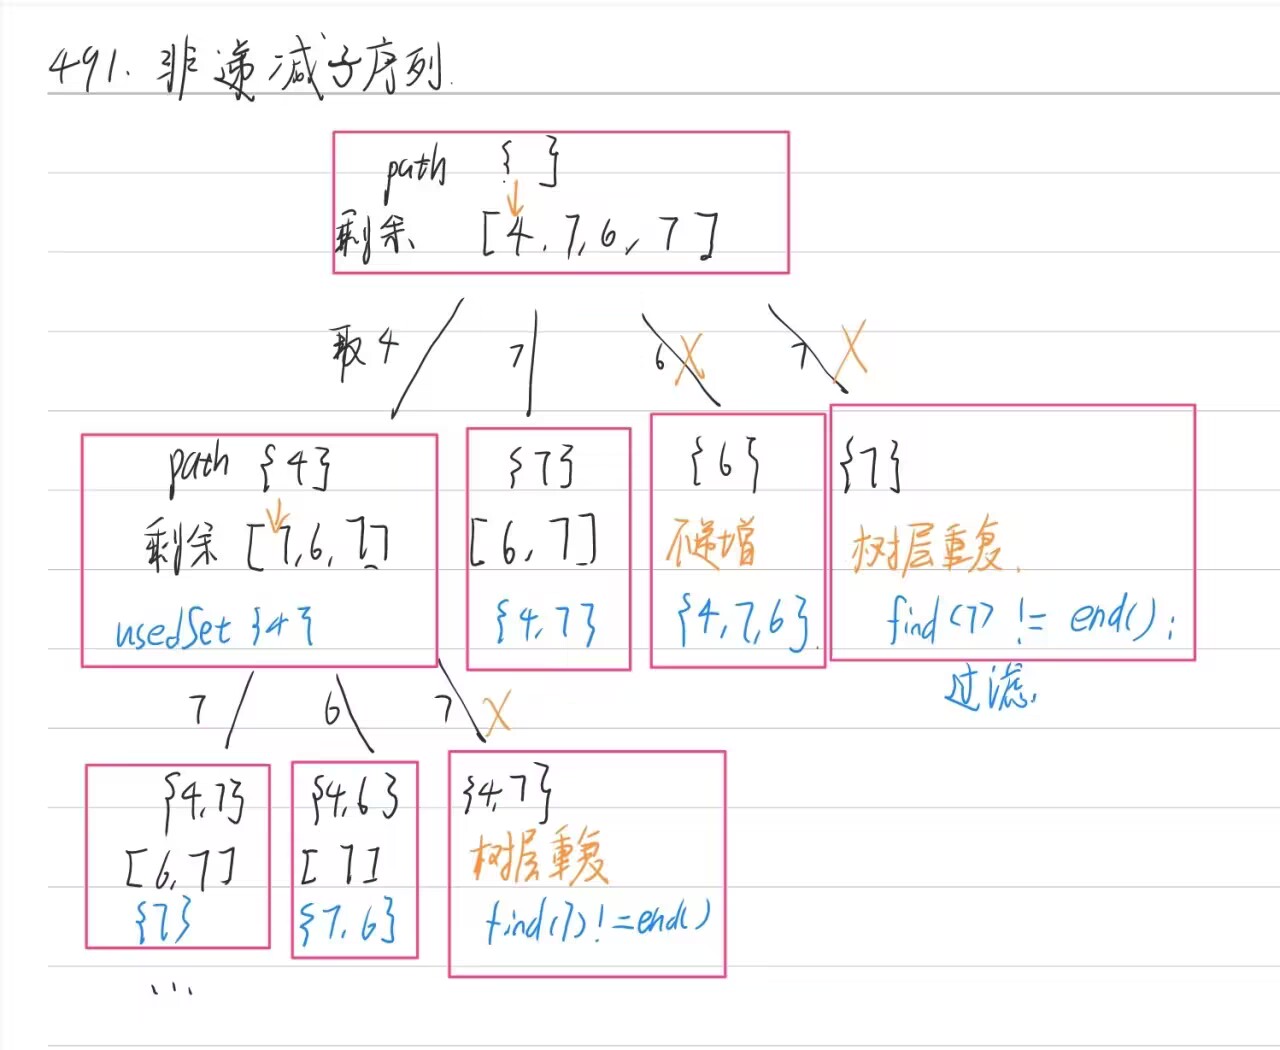 491. 非递减子序列.
path { }
剩余 [4, 7, 6, 7]
取4
7
6 X
7 X
path {4}
剩余 [7,6,7]
usedSet {4}
{7}
[6,7]
{4,7}
{6}
不递增
{4,7,6}.
{7}
树层重复.
find(7) != end();
过滤.
7
6
7 X
{4,7}
[6,7]
{7}
{4,6}
[7]
{7,6}
{4,7}
树层重复
find(7)!=end()
...